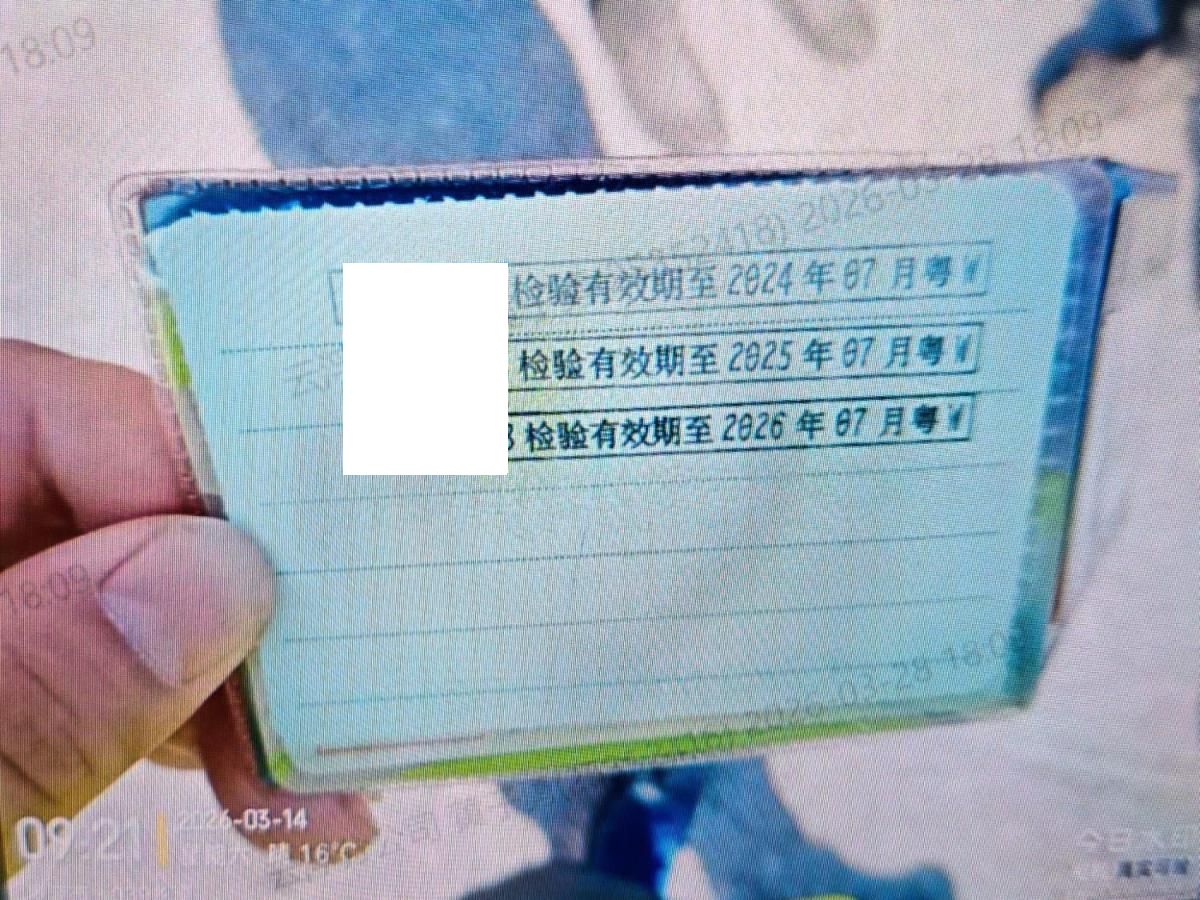 18:09
2418) 2026-03-28 18:09
检验有效期至 2024 年 07 月粤
检验有效期至 2025 年 07 月粤
检验有效期至 2026 年 07 月粤
18:09
2026-03-28 18:09
09:21
2026-03-14
星期六 晴 16℃
今日水印